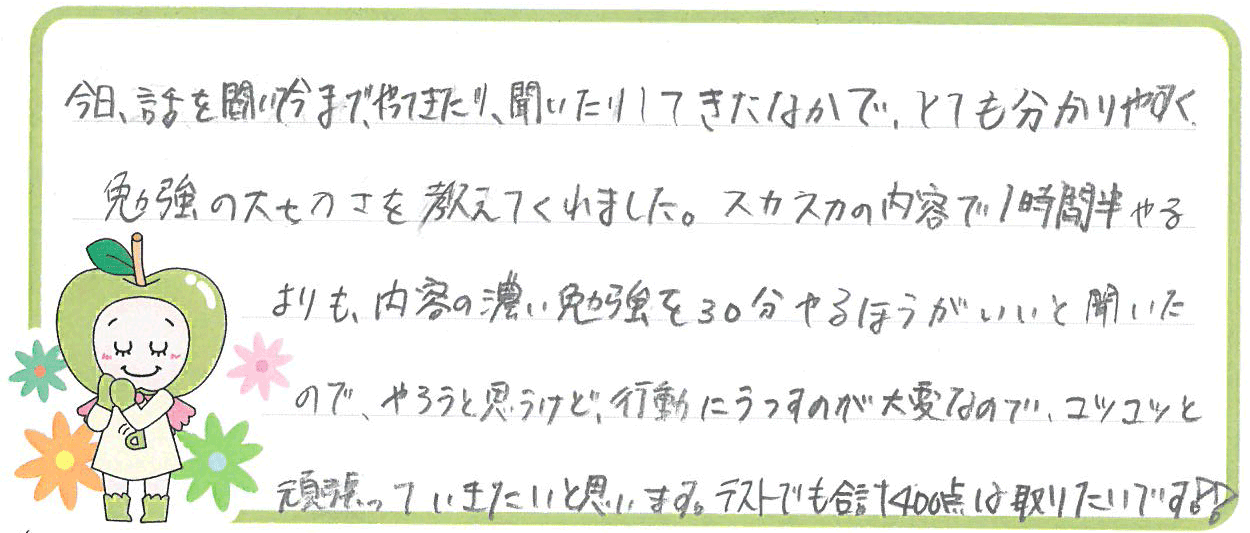 今日、話を聞いて今まで、やってきたり、聞いたりしてきたなかで、とても分かりやすく
勉強の大切さを教えてくれました。スカスカの内容で1時間半やる
よりも、内容の濃い勉強を30分やるほうがいいと聞いた
ので、やろうと思うけど、行動にうつすのが大変なので、コツコツと
頑張っていきたいと思います。テストでも合計400点は取りたいです!!